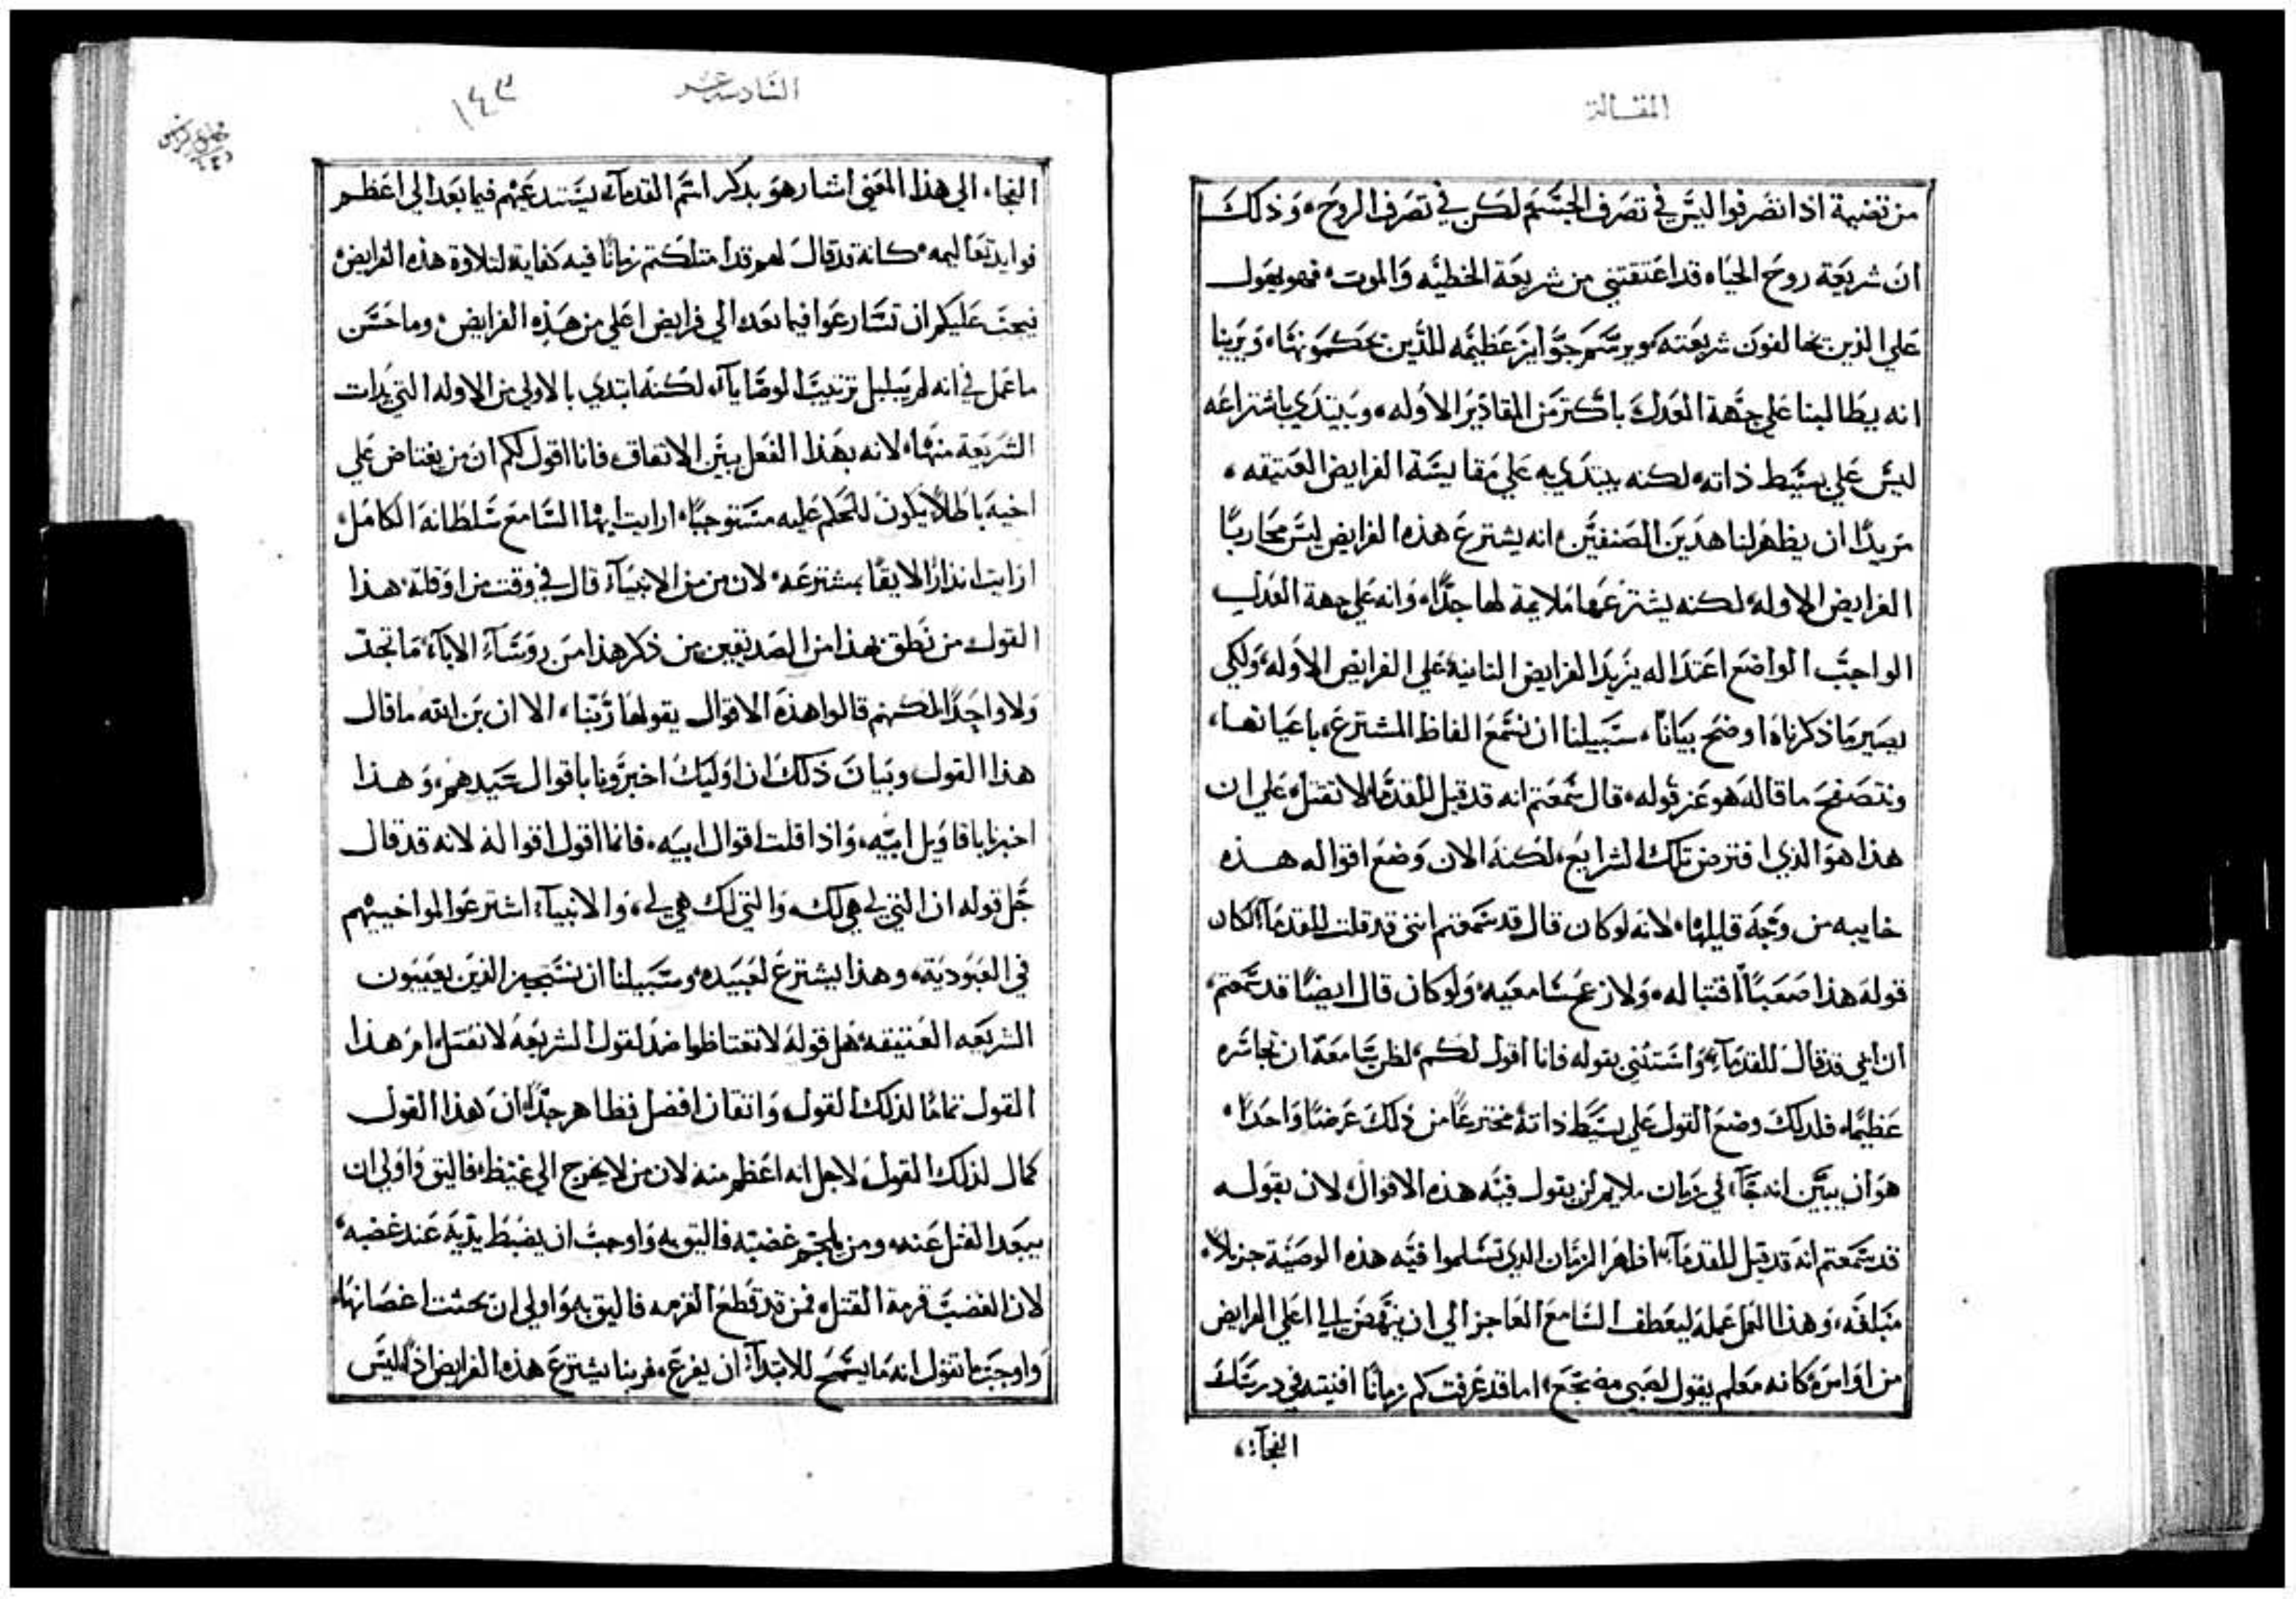 المقالة
من تضيمة اذا تصرفوا ليس في تصرف الجسم لكن في تصرف الروح، وذلك
ان شريعة روح الحياه قد اعتقتني من شريعة الخطيه والموت، فهو يعول
علي الذين يخالفون شريعته ويرسم جوايز عظيمه للذين يحكمونها، ويرينا
انه يطالبنا علي جهة العدل باكثر من المقادير الاوله، ويبتدي باشتراعه
ليس علي بسيط ذاته، لكنه يبتدي به علي مقايسة الفرايض العتيقه،
مريدًا ان يظهر لنا هدين الصنفين، انه يشترع هذه الفرايض ليس محاربًا
الفرايض الاوله، لكنه يشترعها ملايمة لها جدًا، وانه علي جهة العدل
الواجب الواضع اعتداله يزيد الفرايض الثانية علي الفرايض الاوله، ولكي
يصير ما ذكرناه اوضح بيانًا، سبيلنا ان نسمع الفاظ المشترع، باعيانها،
ونتصفح ما قاله هو عن قوله، قال سمعتم انه قد قيل للقدما لا تقتل، علي ان
هذا هو الذي افترض تلك الشرايع، لكنه الان وضع اقواله هذه
خايبه من وجه قايلها، لانه لو كان قال قد سمعتم انني قد قلت للقدمآ، لكان
قوله هذا صعبًا اقتباله، ولازعج سامعيه، ولو كان قال ايضًا قد سمعتم،
ان ابي قد قال للقدمآ، واستثني بقوله فانا اقول لكم، لظن سامعه ان تجاسره
عظيمًا، فلدلك وضع القول علي بسيط ذاته مخترعًا من ذلك غرضًا واحدًا،
هو ان يبين انه جآ، في زمان ملايم لن يقول فيه هذه الاقوال، لان بقوله
قد سمعتم انه قد قيل للقدمآ، اظهر الزمان الدي تسلموا فيه هذه الوصية جزيلاً،
مبلغه، وهذا العمل عمله ليعطف السامع العاجز الي ان ينهض الي اعلي الفرايض
من اوامره، كانه معلم يقول لصبي مضجع، اما قد عرفت كم زمانًا افنيته في درسك
الهجآ،
السادسه عشر
١٤٣
الهجاء الي هذا المعني اشار هو بذكر اسم القدمآ، يستدعيهم فيما بعد الي اعظم
فوايد تعاليمه، كانه قد قال لهم قد امتلكتم زمانًا فيه كفاية لتلاوة هذه الفرايض،
فيجب عليكم ان تسارعوا فيما بعد الي فرايض اعلي من هذه الفرايض، وما حسن
ما عمل في انه لم يبلبل ترتيب الوصايآ، لكنه ابتدي بالاولي من الاوله التي بدات
الشريعة منها، لانه بهذا الفعل يبين الاتفاق، فانا اقول لكم ان من يغتاض علي
اخيه باطلاً يكون للحكم عليه مستوجبًا، ارايت ايها السامع سلطانه الكامل،
ارايت انذارًا لايقًا بمشترعه، لان من من الانبيآ، قال في وقت من اوقاته هذا
القول، من نطق بهذا من الصديقين، من ذكر هذا من روسآ، الابآ، ما تجد
ولا واحدًا لكنهم قالوا هذه الاقوال يقولها ربنا، الا ان بن الله ما قال
هذا القول، وبيان ذلك ان اوليك اخبرونا باقوال سيدهم، وهذا
اخبرنا باقاويل ابيه، واذا قلت اقوال ابيه، فانما اقول اقواله لانه قد قال
جل قوله ان التي لي هي لك، والتي لك هي لي، والانبيآ، اشترعوا لمواخييهم
في العبودية، وهذا يشترع لعبيده، وسبيلنا ان نستخبر الذين يعيبون
الشريعه العتيقه، هل قوله لا تغتاظوا ضد لقول الشريعة لا تقتل، ام هذا
القول تمامًا لذلك القول، واتقان افضل فظاهر جدًا ان هذا القول
كمال لذلك القول، لاجل انه اعظم منه لان من لا يخرج الي غيظ، فاليق واولي ان
يبعد القتل عنده، ومن يلجم غضبه فاليق به واوجب ان يضبط يديه عند غضبه،
لان الغضب قرمة القتل، فمن قد قطع القرمه فاليق به واولي ان يجتث اغصانها،
واوجب ما نقول انه ما يسمح للابتدآ، ان يفرع، فربنا يشترع هذه الفرايض اذًا، ليس